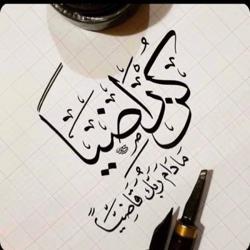 كن راضيا
مَادَامَ رَبُّكَ قَاضِيًا